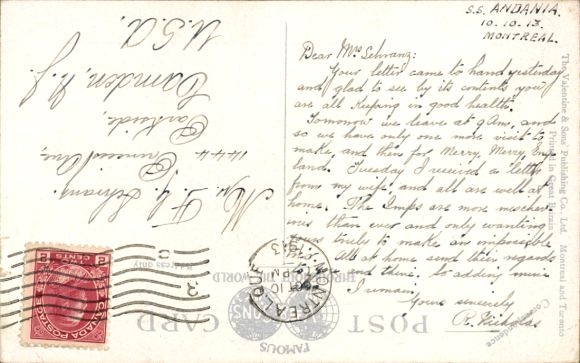 S.S. ANDANIA.
10.10.13.
MONTREAL.
Dear Mrs Schranz:
Your letter came to hand yesterday
and glad to see by its contents you
are all keeping in good health.
Tomorrow we leave at 9 am, and
so we have only one more visit to
make, and then for Merry, Merry, Eng
land. Tuesday I received a letter
from my wife, and all are well at
home. The Imps are more mischie
vous than ever and only wanting
yours truly to make an impossible
All at home send their regards
to adding mine
I remain,
Yours sincerely
R. Nicholas
Mrs. F. G. Schranz.
1444
Parkside
Camden, N.J.
U.S.A.
The Valentine & Sons' Publishing Co., Ltd. Montreal and Toronto
Printed in Great Britain
Correspondence
Address only
POST CARD
FAMOUS
THROUGHOUT THE WORLD
MONTREAL, QUE.
OCT 10
1913
CANADA POSTAGE
2 CENTS 2